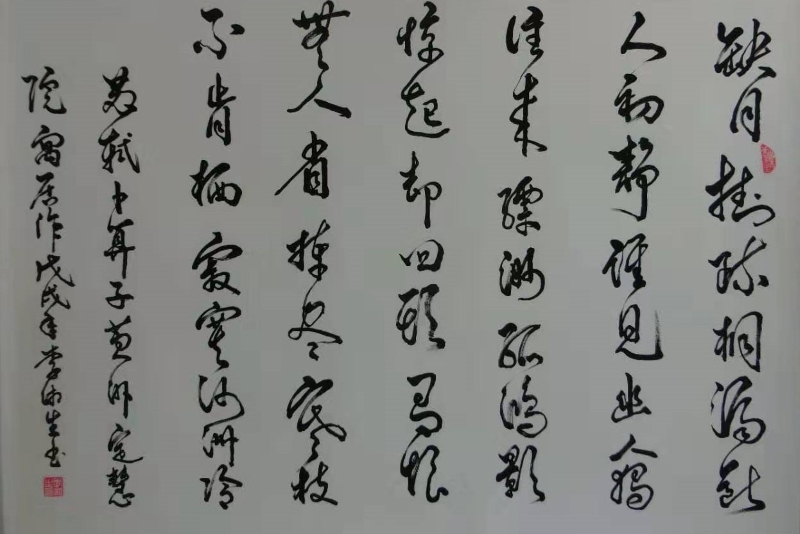 缺月挂疏桐漏断
人初静谁见幽人独
往来缥渺孤鸿影
惊起却回头有恨
无人省拣尽寒枝
不肯栖寂寞沙洲冷
苏轼卜算子黄州定慧
院寓居作戊戌年李沛生书